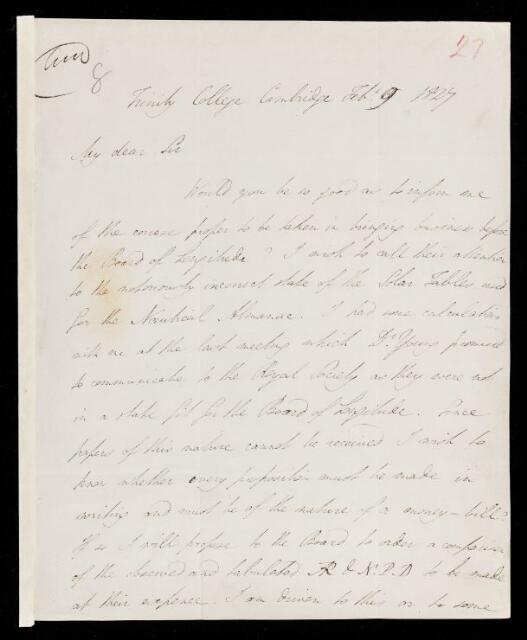 27
8
Trinity College Cambridge Feb. 9 1827
My dear Sir
Would you be so good as to inform me
of the course proper to be taken in bringing business before
the Board of Longitude? I wish to call their attention
to the notoriously incorrect state of the Solar Tables used
for the Nautical Almanac. I had some calculations
with me at the last meeting which Dr. Young promised
to communicate to the Royal Society as they were not
in a state fit for the Board of Longitude. Since
papers of this nature cannot be received I wish to
know whether every proposition must be made in
writing and must be of the nature of a money-bill?
If so I will propose to the Board to order a comparison
of the observed and tabulated AR & N.P.D to be made
at their expence. I am driven to this or to some